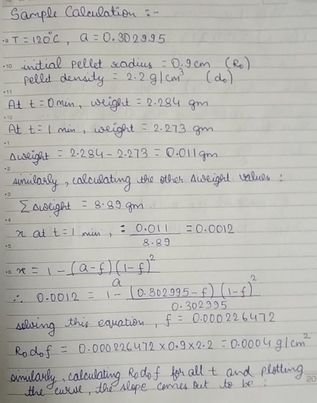 Sample Calculation :-
T = 120°C, a = 0.302995
initial pellet radius = 0.9cm (R₀)
pellet density = 2.2 g/cm³ (d₀)
At t = 0 min, weight = 2.284 gm
At t = 1 min, weight = 2.273 gm
Δweight = 2.284 - 2.273 = 0.011 gm
similarly, calculating the other Δweight values :
Σ Δweight = 8.89 gm
x at t = 1 min, = 0.011 / 8.89 = 0.0012
x = 1 - (a-f)(1-f)² / a
∴ 0.0012 = 1 - (0.302995-f)(1-f)² / 0.302995
solving this equation, f = 0.000226472
R₀d₀f = 0.000226472 x 0.9 x 2.2 = 0.0004 g/cm²
similarly, calculating R₀d₀f for all t and plotting
the curve, the slope comes out to be :